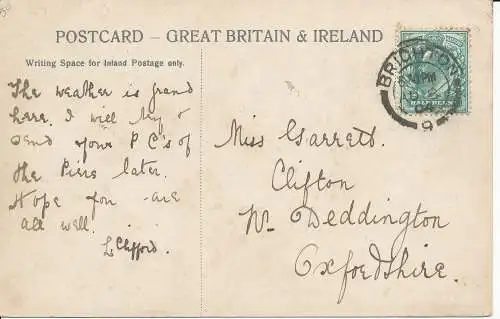 POSTCARD — GREAT BRITAIN & IRELAND
Writing Space for Inland Postage only.
The weather is grand
here. I will try &
send your P C's of
the Piers later.
Hope you are
all well.
L Clifford.
Miss Garrett.
Clifton
Nr. Deddington
Oxfordshire.
BRIGHTON
PM
9
HALF PENNY